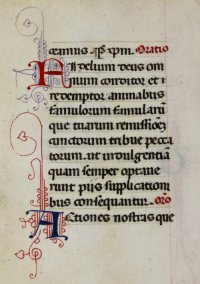 ꝑeamus. ꝑ xp̄m. Oratio
Fidelium deus om
nium conditor et r
redemptor animabus
famulorum famularū
que tuarum remissioēȝ
cunctorum tribue pecca
torum. ut indulgentiā
quam semper optaue
runt pijs supplicationi
bus consequantur. or̄o
Actiones nostras que